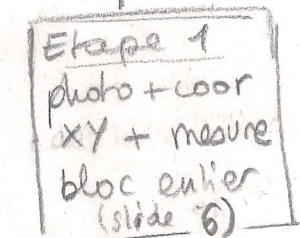 Etape 1
photo + coor
XY + mesure
bloc entier
(slide 6)